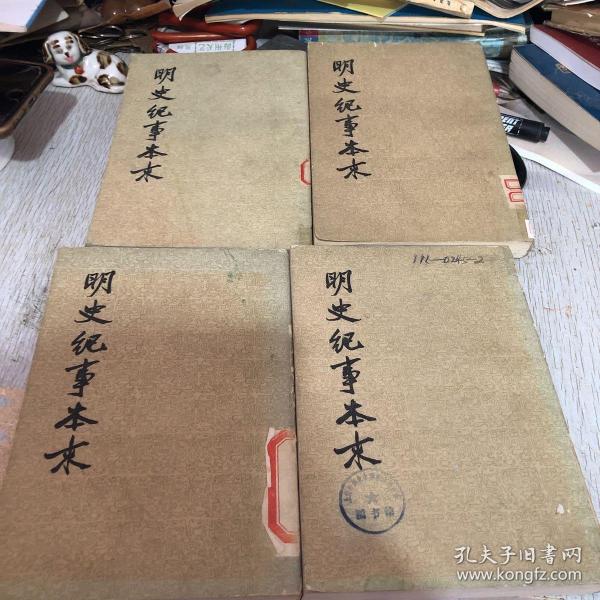 明史纪事本末
明史纪事本末
明史纪事本末
明史纪事本末
孔夫子旧书网
www.kongfz.com